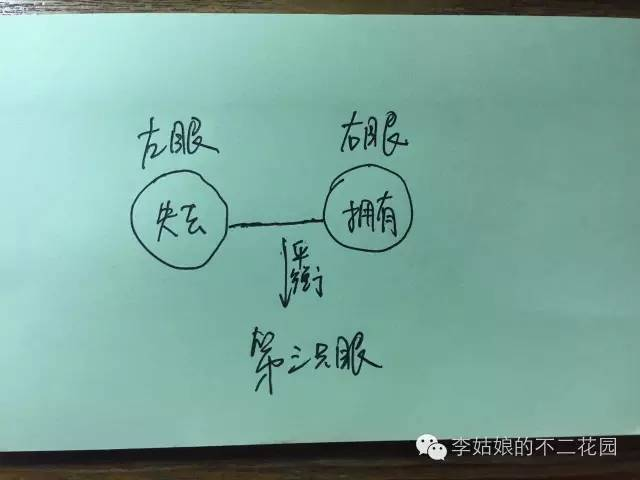 左眼 右眼
失去 拥有
平衡
第三只眼
李姑娘的不二花园